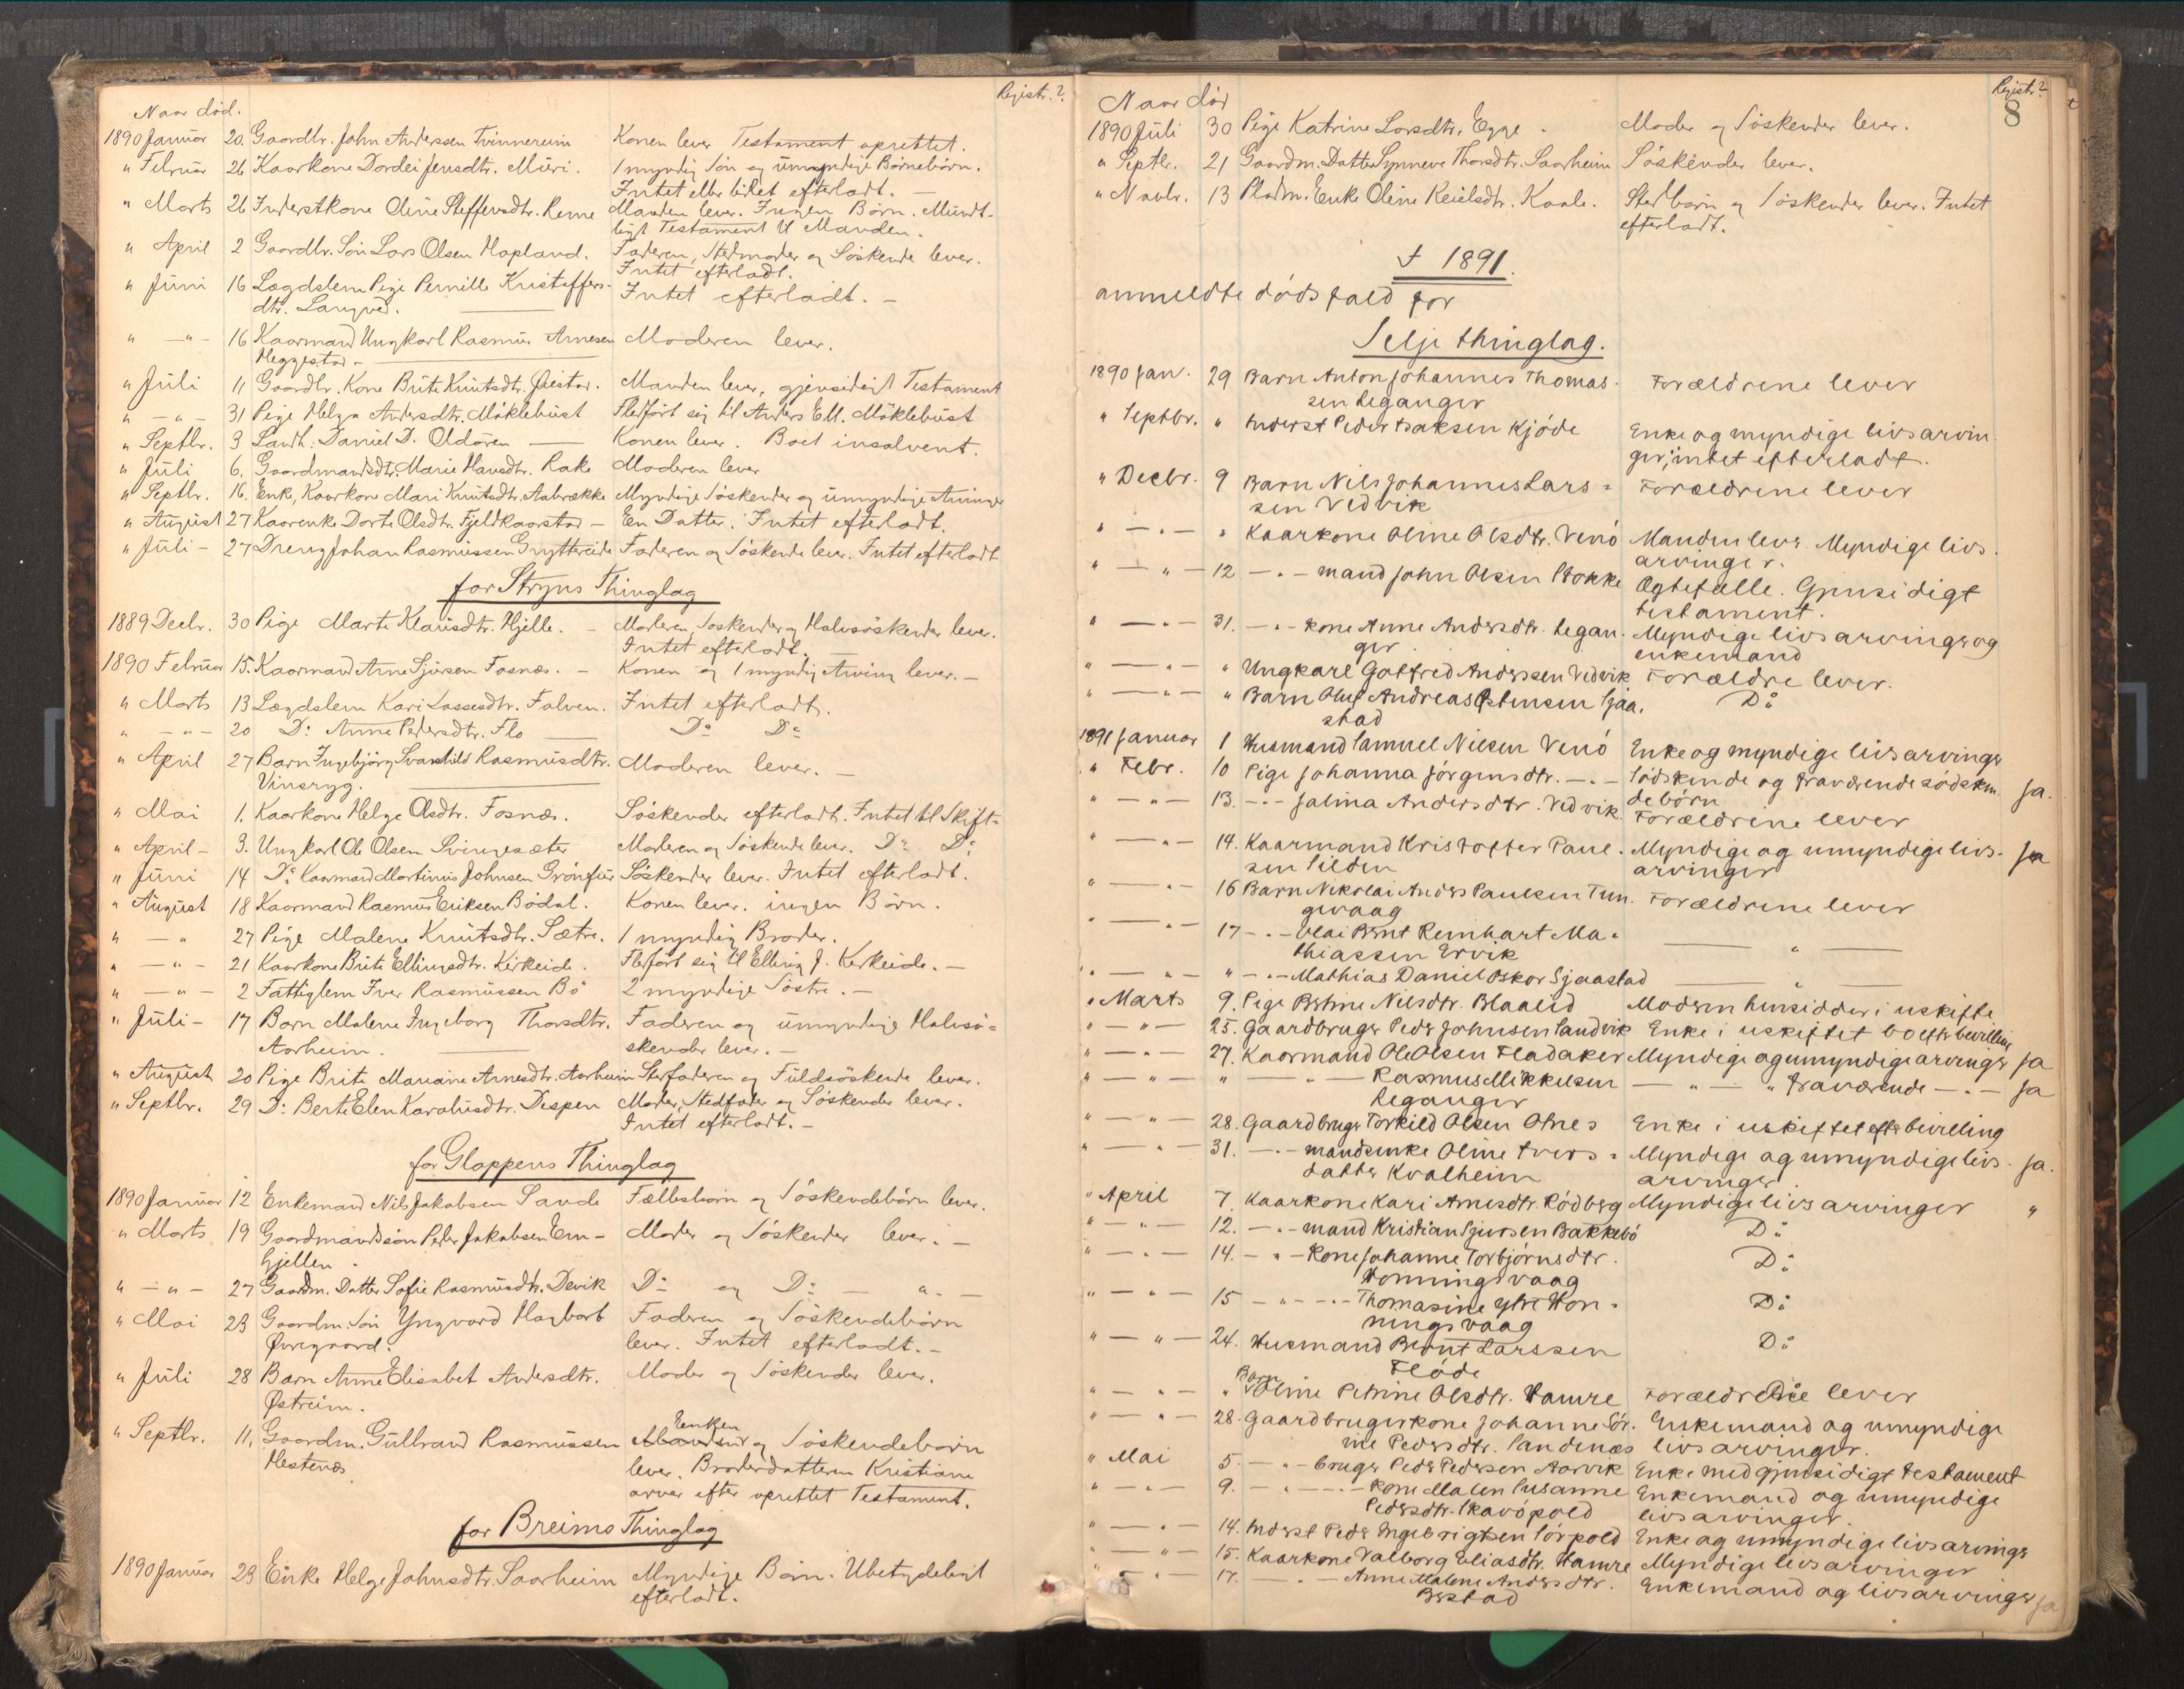 Registr.?
Naar død.
1890 Januar 20. Gaardbr. John Anderssen Tvinnereim Konen lever Testament oprettet.
" Februar 26 Kaarkone Dordei Jensdtr. Muri. 1 myndig Søn og umyndige Børnebørn.
Intet eller lidet efterladt. —
" Marts 26 Inderstkone Oline Steffensdtr. Reme Manden lever. Ingen Børn. Mundt-
ligt Testament til Manden.
" April 2 Gaardbr. Søn Lars Olsen Hopland. Faderen, Stedmoder og Söskende lever.
Intet efterladt.
" Juni 16 Lægdslem Pige Pernille Kristoffers- Intet efterladt. —
dtr. Langved.
" —"— 16 Kaarmand Ungkarl Rasmus Arnesen Moderen lever.
Heggestad —
" Juli 11 Gaardbr. Kone Brite Knutsdtr. Øiestad. Manden lever, gjensidigt Testament
" — " — 31 Pige Helga Andersdtr. Möklebust Fledført sig til Anders E. M. Möklebust
" Septbr. 3 Landh. Daniel D. Oldören Konen lever. Boet insolvent.
" Juli 6. Gaardmandsdtr. Marie Hansdtr. Rake Moderen lever
" Septbr. 16. Enke, Kaarkone Mari Knutsdtr. Aabrække Myndige Söskender og umyndige Arvinger
" August 27 Kaarenke Dorte Olsdtr. Fjeldkaarstad — En Datter. Intet efterladt.
" Juli — 27 Dreng Johan Rasmussen Gryttereide Faderen og Söskende lever. Intet efterladt
for Stryns Thinglag
1889 Decbr. 30 Pige Marte Klausdtr. Hjelle. — Moderen, Söskender og Halvsöskender lever.
Intet efterladt. —
1890 Februar 15. Kaarmand Arne Sjursen Fosnæs. — Konen og 1 myndig Arving lever. —
" Marts 13 Lægdslem Kari Lassesdtr. Folven. Intet efterladt.
" — " — 20 Do Anne Pedersdtr. Flo Do Do
" April 27 Barn Ingebjörg Svanhild Rasmusdtr. Moderen lever. —
Vinsryg.
" Mai 1. Kaarkone Helge Olsdtr. Fosnæs. Söskender efterladt. Intet til Skifte
" April — 3. Ungkarl Ole Olsen Svingesæter Moderen og Söskende lever. Do Do
" Juni 14 Do Kaarmand Martinus Johnsen Grönfur Söskender lever. Intet efterladt.
" August 18 Kaarmand Rasmus Eriksen Bödal. Konen lever. ingen Börn.
" — " 27 Pige Malene Knutsdtr. Sætre. 1 myndig Broder.
" — " — 21 Kaarkone Brite Ellingsdtr. Kirkeide. Fledført sig til Elling J. Kirkeide. —
" — " — 2 Fattiglem Iver Rasmussen Bö 2 myndige Söstre. —
" Juli — 17 Barn Malene Ingeborg Thorsdtr. Faderen og umyndige Halvsö-
Aarheim. skender lever. —
" August 20 Pige Brite Mariane Arnesdtr. Aarheim Stedfaderen og Fuldsöskende lever.
" Septbr. 29 Do Berte Elen Karolusdtr. Despen Moder, Stedfader og Söskender lever.
Intet efterladt. —
for Gloppens Thinglag
1890 Januar 12 Enkemand Nils Jakobsen Sande Fællesbarn og Söskendebörn lever.
" Marts 19 Gaardmandssön Peder Jakobsen Em- Moder og Söskender lever. —
hjellen.
" — " — 27 Gaardm. Datter Sofie Rasmusdtr. Devik Do og Do — " —
" Mai 23 Gaardm. Sön Yngvard Hagbart Faderen og Söskendebörn
Øvregaard. lever. Intet efterladt. —
" Juli 28 Barn Anne Elisabet Andersdtr. Moder og Söskender lever.
Østreim.
" Septbr. 11. Gaardm. Gulbrand Rasmussen Enken og Söskendebörn
Hestenæs. lever. Broderdatteren Kristiane
arver efter oprettet Testament.
for Breims Thinglag
1890 Januar 23 Enke Helge Johnsdtr. Saarheim Myndige Börn. Ubetydeligt
efterladt.
Registr.?
8
Naar död
1890 Juli 30 Pige Katrine Larsdtr. Egge. Moder og Söskender lever.
" Septbr. 21 Gaardm. Datter Synneve Thorsdtr. Saarheim Söskender lever.
" Novbr. 13 Pladsm. Enke Oline Keielsdtr. Kaale. Stedbörn og Söskender lever. Intet
efterladt.
I 1891.
anmeldte dödsfald for
Selje thinglag.
1890 Jan. 29 Barn Anton Johannes Thomas- Forældrene lever
sen Leganger
" Septbr. " Inderst Peder Isaksen Kjöde Enke og myndige livsarvin-
ger; intet efterladt.
" Decbr. 9 Barn Nils Johannes Lars- Forældrene lever
sen Vedvik
" — " — " Kaarkone Oline Olsdtr. Venö Manden lever Myndige livs-
arvinger.
" — " — 12 — " — mand John Olsen Stokke Ægtefælle. Gjensidigt
testament.
" — " — 31. — " — kone Anne Andersdtr. Legan- Myndige livsarvinger og
ger enkemand
" — " — " Ungkarl Gotfred Anderssen Vedvik Forældre lever.
" — " — " Barn Oluf Andreas Östensen Sjaa- Do
stad
1891 Januar 1 Husmand Samuel Nilsen Venö Enke og myndige livsarvinger
" Febr. 10 Pige Johanna Jörgensdtr. — " — Södskende og fraværende södsken- Ja.
debörn
" — " — 13. — " — Jalina Andersdtr. Vedvik Forældrene lever
" — " — 14. Kaarmand Kristoffer Paul- Myndige og umyndige livs- Ja
sen Silden arvinger
" — " — 16 Barn Nikolai Anders Paulsen Tun- Forældrene lever
gevaag
" — " — 17 — " — Olai Bernt Reinhart Ma- — " —
thiassen Ervik
" — " — " — " — Mathias Daniel Oskar Sjaastad — " —
" Marts 9. Pige Bertine Nilsdtr. Blaalid Modern hensidder i uskifte
" — " — 25. Gaardbruger Peder Johnsen Sandvik Enke i uskiftet bo efter bevilling
" — " — 27. Kaarmand Ole Olsen Fladaker Myndige og umyndige arvinger Ja
" — " — " — " — Rasmus Mikkelsen — " — " fraværende — " — Ja
Leganger
" — " — 28. Gaardbruger Torkild Olsen Otnes Enke i uskiftet efter bevilling
" — " — 31. — " — mandsenke Oline Ivers- Myndige og umyndige livs- Ja.
datter Kvalheim arvinger
" April 7. Kaarkone Kari Arnesdtr. Rödberg Myndige livsarvinger "
" — " — 12. — " — mand Kristian Sjursen Bakkebö Do
" — " — 14. — " — kone Johanne Torbjörnsdtr. Do
Honningsvaag
" — " — 15 — " — " — Thomasine ytre Hon- Do
ningsvaag
" — " — 24. Husmand Bernt Larssen Do
Flöde
" — " — " Barn Oline Petrine Olsdtr. Hamre Forældrene lever
" — " — 28. Gaardbrugerkone Johanne Sör- Enkemand og umyndige
ine Pedersdtr. Sandenæs livsarvinger.
" Mai 5. — " — bruger Peder Pedersen Aarvik Enke med gjensidigt testament
" — " — 9. — " — " — kone Malen Susanne Enkemand og umyndige
Pedersdtr. Skavöpold livsarvinger.
" — " — 14. Inderst Peder Ingebrigtsen Sörpold Enke og umyndige livsarvinger
" — " — 15. Kaarkone Valborg Eliasdtr. Hamre Myndige livsarvinger
" — " — 17. — " — Anne Malene Andersdtr. Enkemand og livsarvinger Ja
Berstad